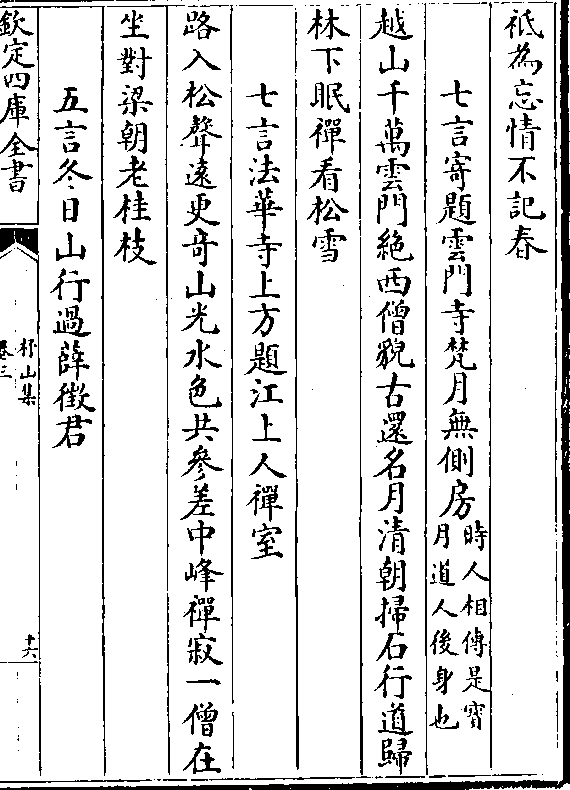 祗為忘情不記春
七言寄題雲門寺梵月無側房時人相傳是寳
月道人後身也
越山千萬雲門絶西僧貌古還名月清朝掃石行道歸
林下眠禪看松雪
七言法華寺上方題江上人禪室
路入松聲逺更奇山光水色共參差中峰禪寂一僧在
坐對梁朝老桂枝
五言冬日山行過薛徴君
欽定四庫全書
杼山集
卷三
十六